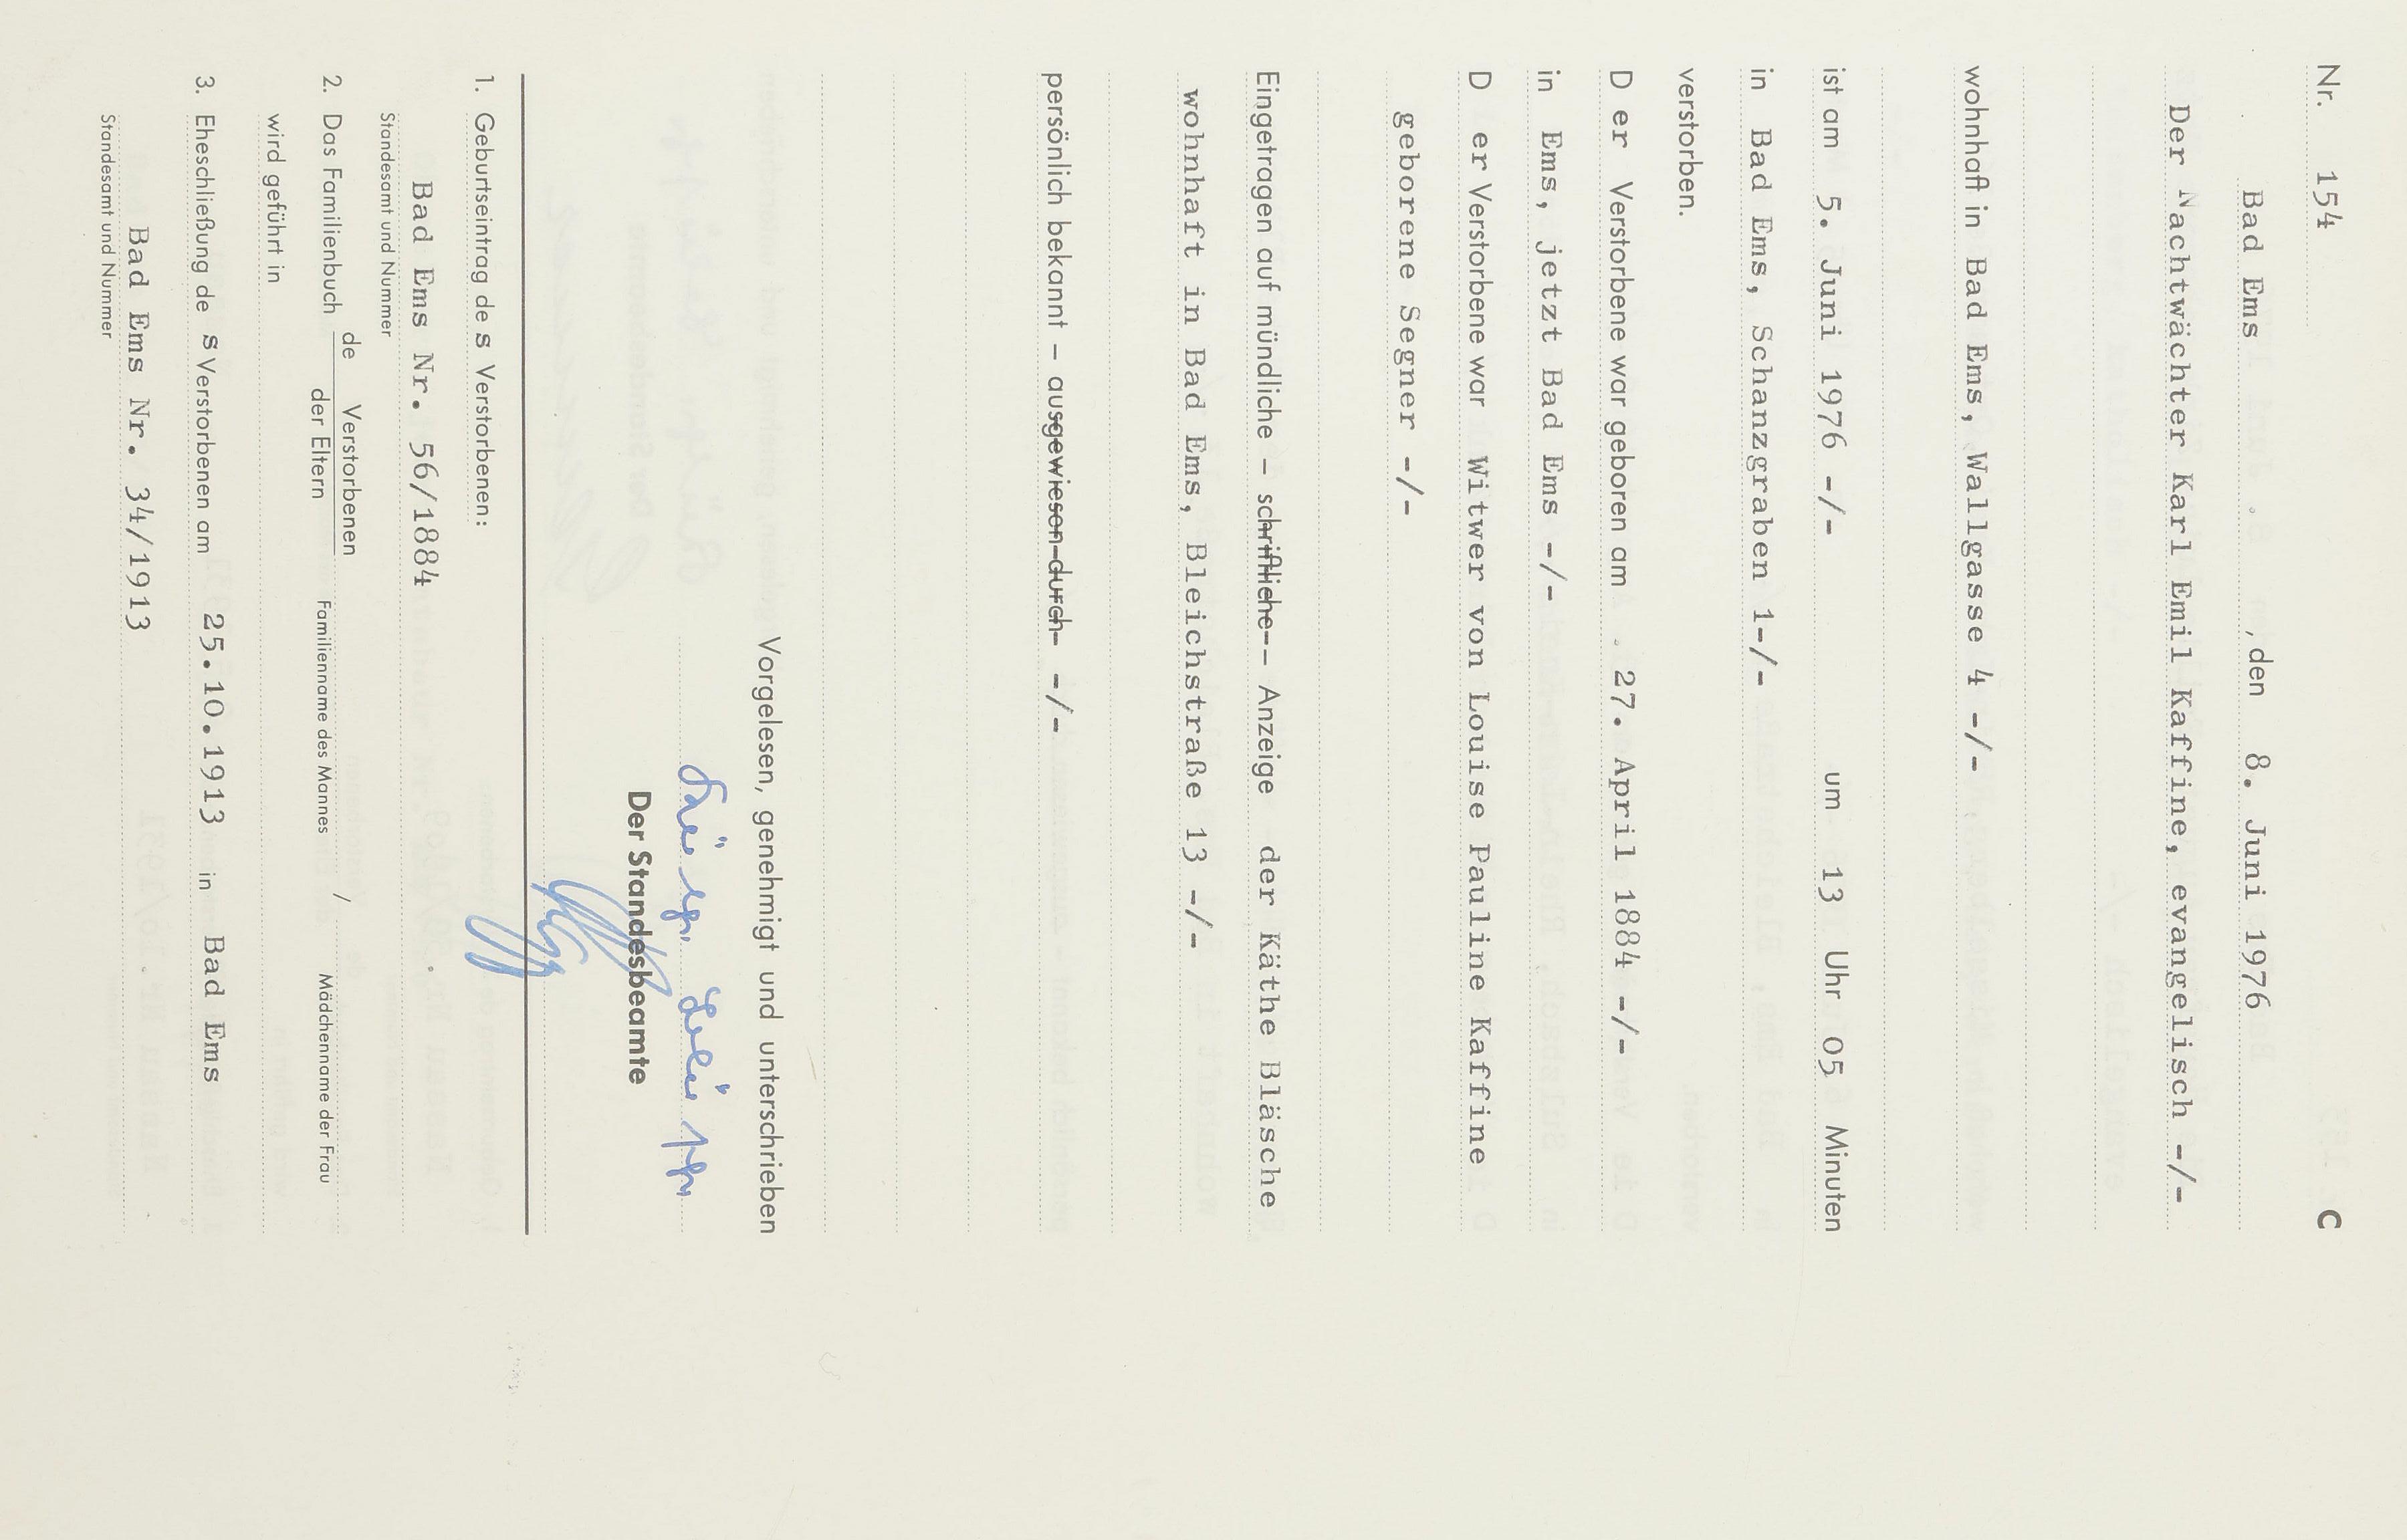 Nr. 154 C
Bad Ems, den 8. Juni 1976
Der Nachtwächter Karl Emil Kaffine, evangelisch -/-
wohnhaft in Bad Ems, Wallgasse 4 -/-
ist am 5. Juni 1976 -/- um 13 Uhr 05 Minuten
in Bad Ems, Schanzgraben 1-/-
verstorben.
D er Verstorbene war geboren am 27. April 1884 -/-
in Ems, jetzt Bad Ems -/-
D er Verstorbene war Witwer von Louise Pauline Kaffine
geborene Segner -/-
Eingetragen auf mündliche – schriftliche-- Anzeige der Käthe Bläsche
wohnhaft in Bad Ems, Bleichstraße 13 -/-
persönlich bekannt – ausgewiesen durch- -/-
Vorgelesen, genehmigt und unterschrieben
Der Standesbeamte
1. Geburtseintrag de s Verstorbenen:
Bad Ems Nr. 56/1884
Standesamt und Nummer
2. Das Familienbuch de Verstorbenen / 
der Eltern Familienname des Mannes Mädchenname der Frau
wird geführt in
3. Eheschließung de s Verstorbenen am 25.10.1913 in Bad Ems
Bad Ems Nr. 34/1913
Standesamt und Nummer